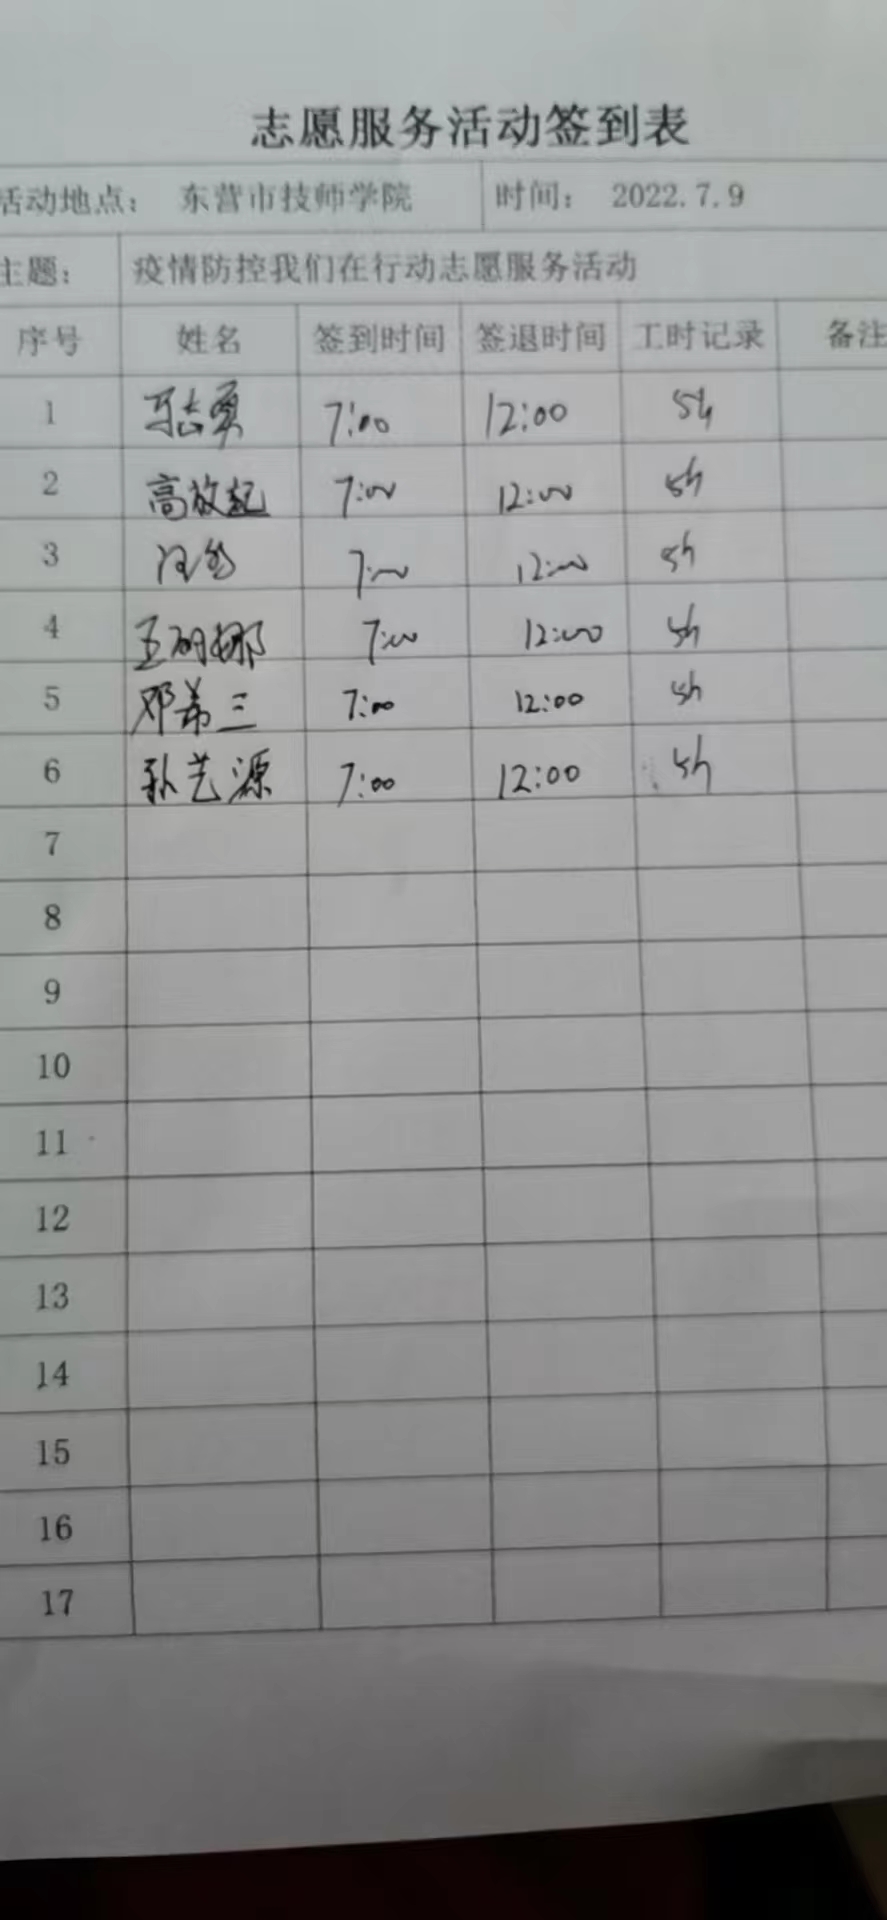 志愿服务活动签到表
活动地点： 东营市技师学院 时间： 2022.7.9
主题： 疫情防控我们在行动志愿服务活动
序号 姓名 签到时间 签退时间 工时记录 备注
1 7:00 12:00 5h
2 高放起 7:00 12:00 5h
3 7:00 12:00 5h
4 7:00 12:00 5h
5 邓弟三 7:00 12:00 5h
6 孙艺源 7:00 12:00 5h
7
8
9
10
11
12
13
14
15
16
17